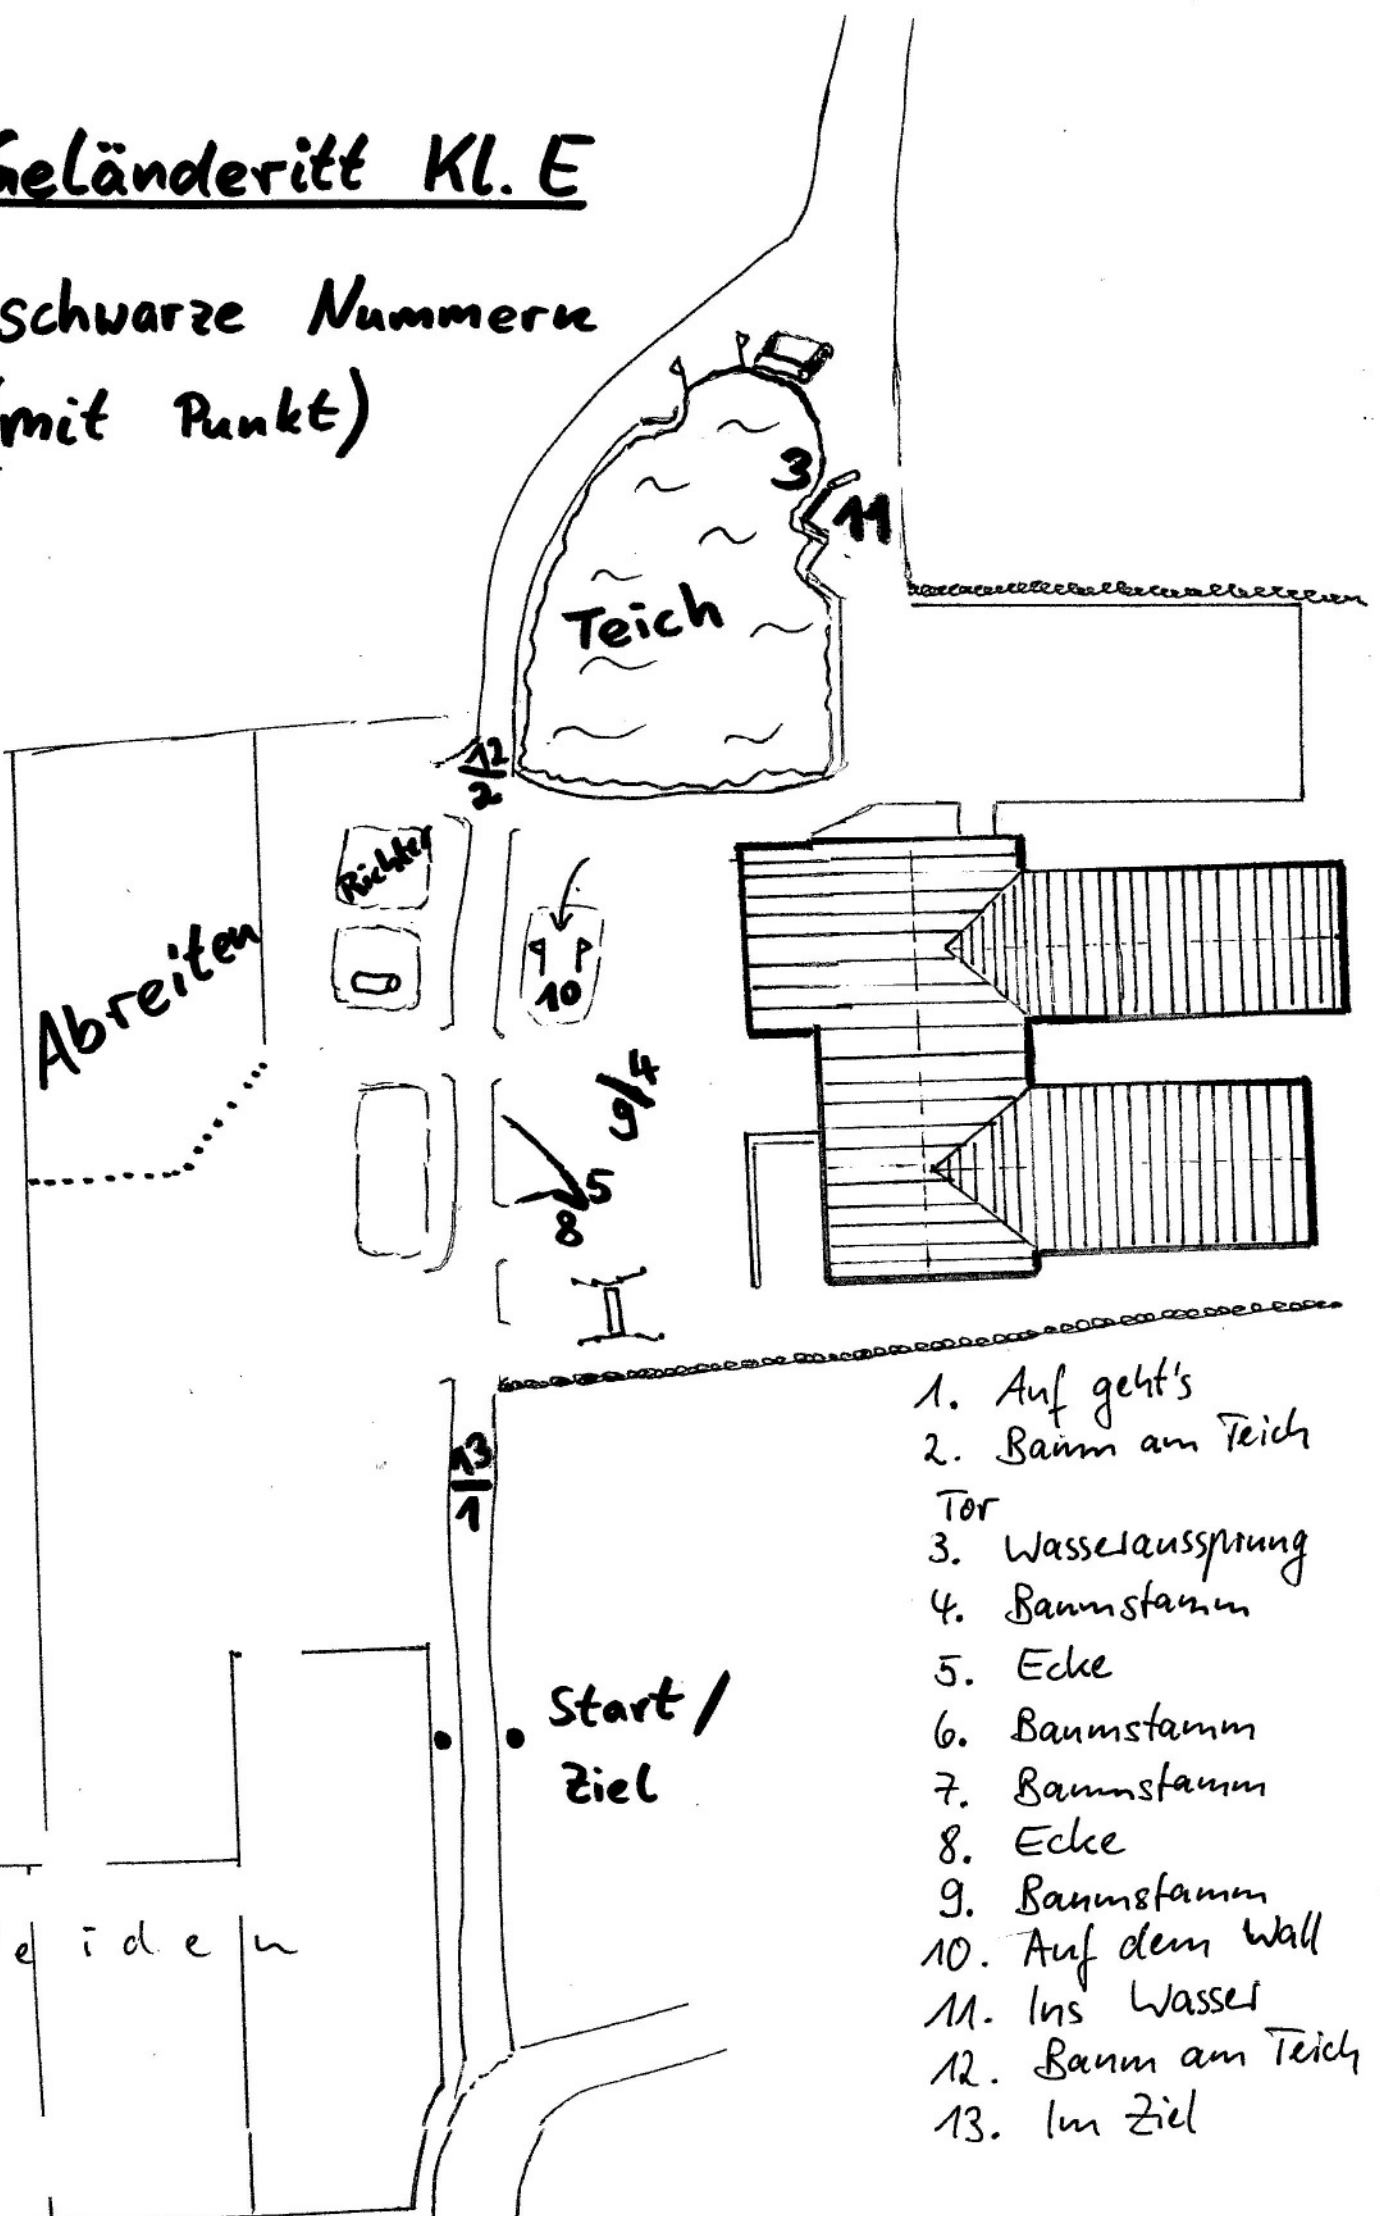 Geländeritt Kl. E
schwarze Nummern
(mit Punkt)
3
11
Teich
12
2
Richter
10
Abreiten
9/4
5
8
13
1
Start/
Ziel
e i d e n
1. Auf geht's
2. Baum am Teich
Tor
3. Wasseraussprung
4. Baumstamm
5. Ecke
6. Baumstamm
7. Baumstamm
8. Ecke
9. Baumstamm
10. Auf dem Wall
11. Ins Wasser
12. Baum am Teich
13. Im Ziel